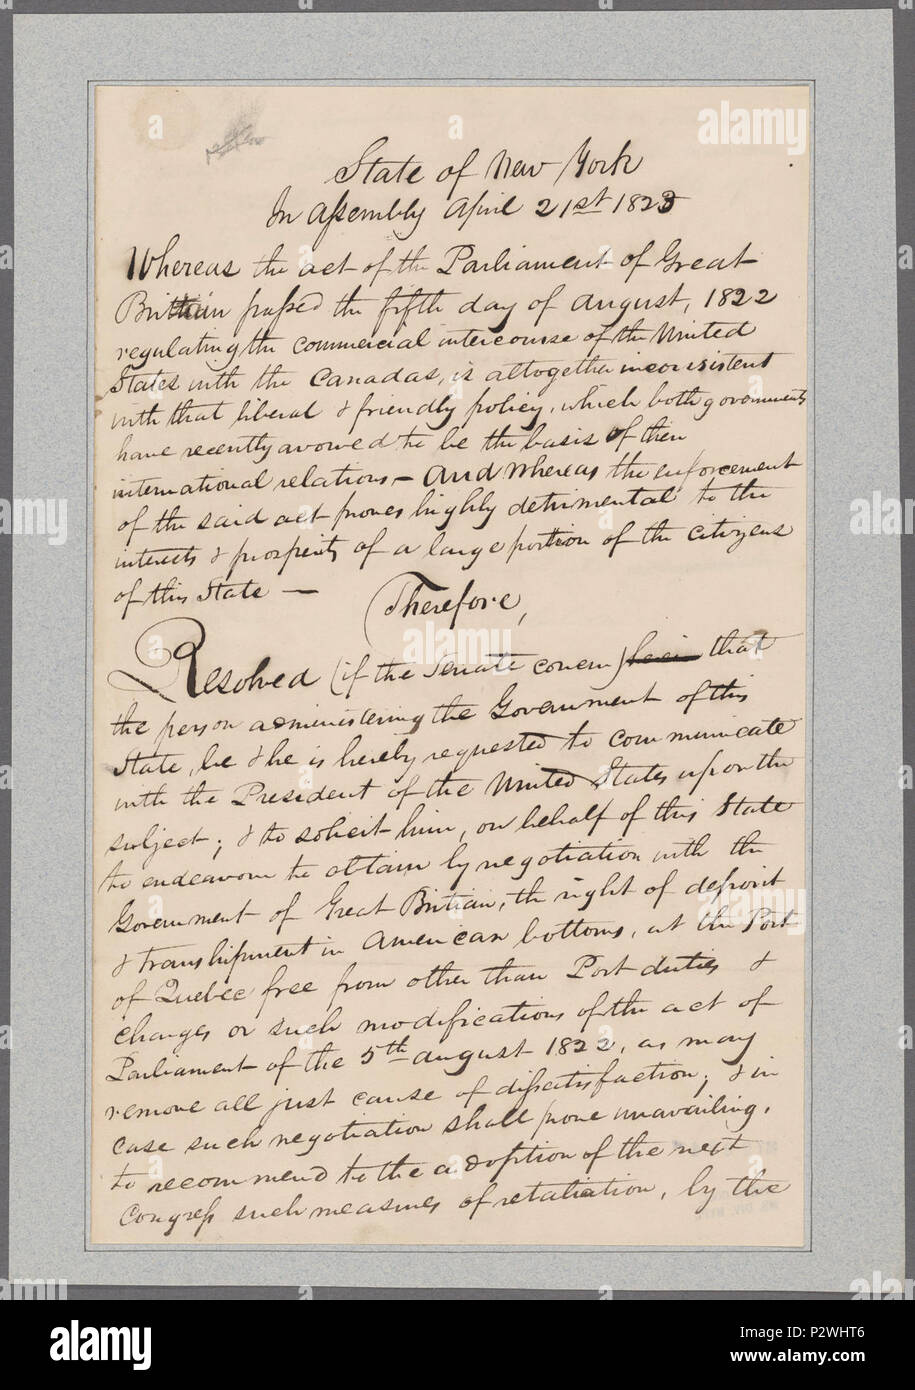 State of New York
In Assembly April 21st 1823
Whereas the act of the Parliament of Great
Brittain passed the fifth day of August, 1822
regulating the commercial intercourse of the United
States with the Canadas, is altogether inconsistent
with that liberal & friendly policy, which both governments
have recently avowed to be the basis of their
international relations — And Whereas the enforcement
of the said act proves highly detrimental to the
interests & prosperity of a large portion of the citizens
of this State —
Therefore,
Resolved (if the Senate concur) that
the person administering the Government of this
State, be & he is hereby requested to communicate
with the President of the United States upon the
subject; & to solicit him, on behalf of this State
to endeavour to obtain by negotiation with the
Government of Great Britian, the right of deposit
& transhipment in American bottoms, at the Port
of Quebec free from other than Port duties &
charges or such modifications of the act of
Parliament of the 5th August 1822, as may
remove all just cause of dissatisfaction; & in
case such negotiation shall prove unavailing,
to recommend to the adoption of the next
Congress such measures of retaliation, by the
alamy
Image ID: P2WHT6
www.alamy.com